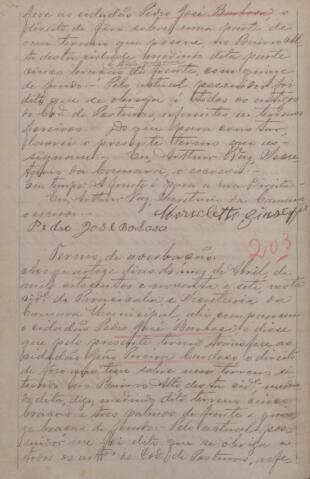 fere ao cidadão Pedro José Barbosa o
direito de fôro sobre uma parte de
um terreno que possue, no Bairro Alto
desta cidade medindo dita parte
cinco braças de frente, com quinze
de fundo. Pelo actual possuidor foi
dito que se obriga a todos os artigos
do Cod. de Posturas, referentes aos terrenos
foreiros. Do que para constar
lavrei o presente termo que as-
signaram. Eu, Arthur Vaz, Secre-
tario da Camara, o escrevi.
Em tempo: A frente é para a rua Direita.
Eu, Arthur Vaz, Secretario da Camara
escrevi.
Pedro José Barbosa
203
Termo de averbação
Aos quatorze dias do mez de Abril, de
mil oitocentos e noventa e sete nesta
cid. de Piracicaba e Secretaria da
Camara Municipal, ahi compareceu
o cidadão Pedro José Barbosa e disse
que pelo presente termo transfere ao
cidadão Pereira Cardoso o direito
de foro que tem sobre um terreno si-
tuado no Bairro Alto desta cid. medin-
do dita, digo, medindo dito terreno cinco
braças e tres palmos de frente e quin-
ze braças de fundo. Pelo actual pos-
suidor me foi dito que se obriga a
todos os artos. do Cod. de Posturas, refe-